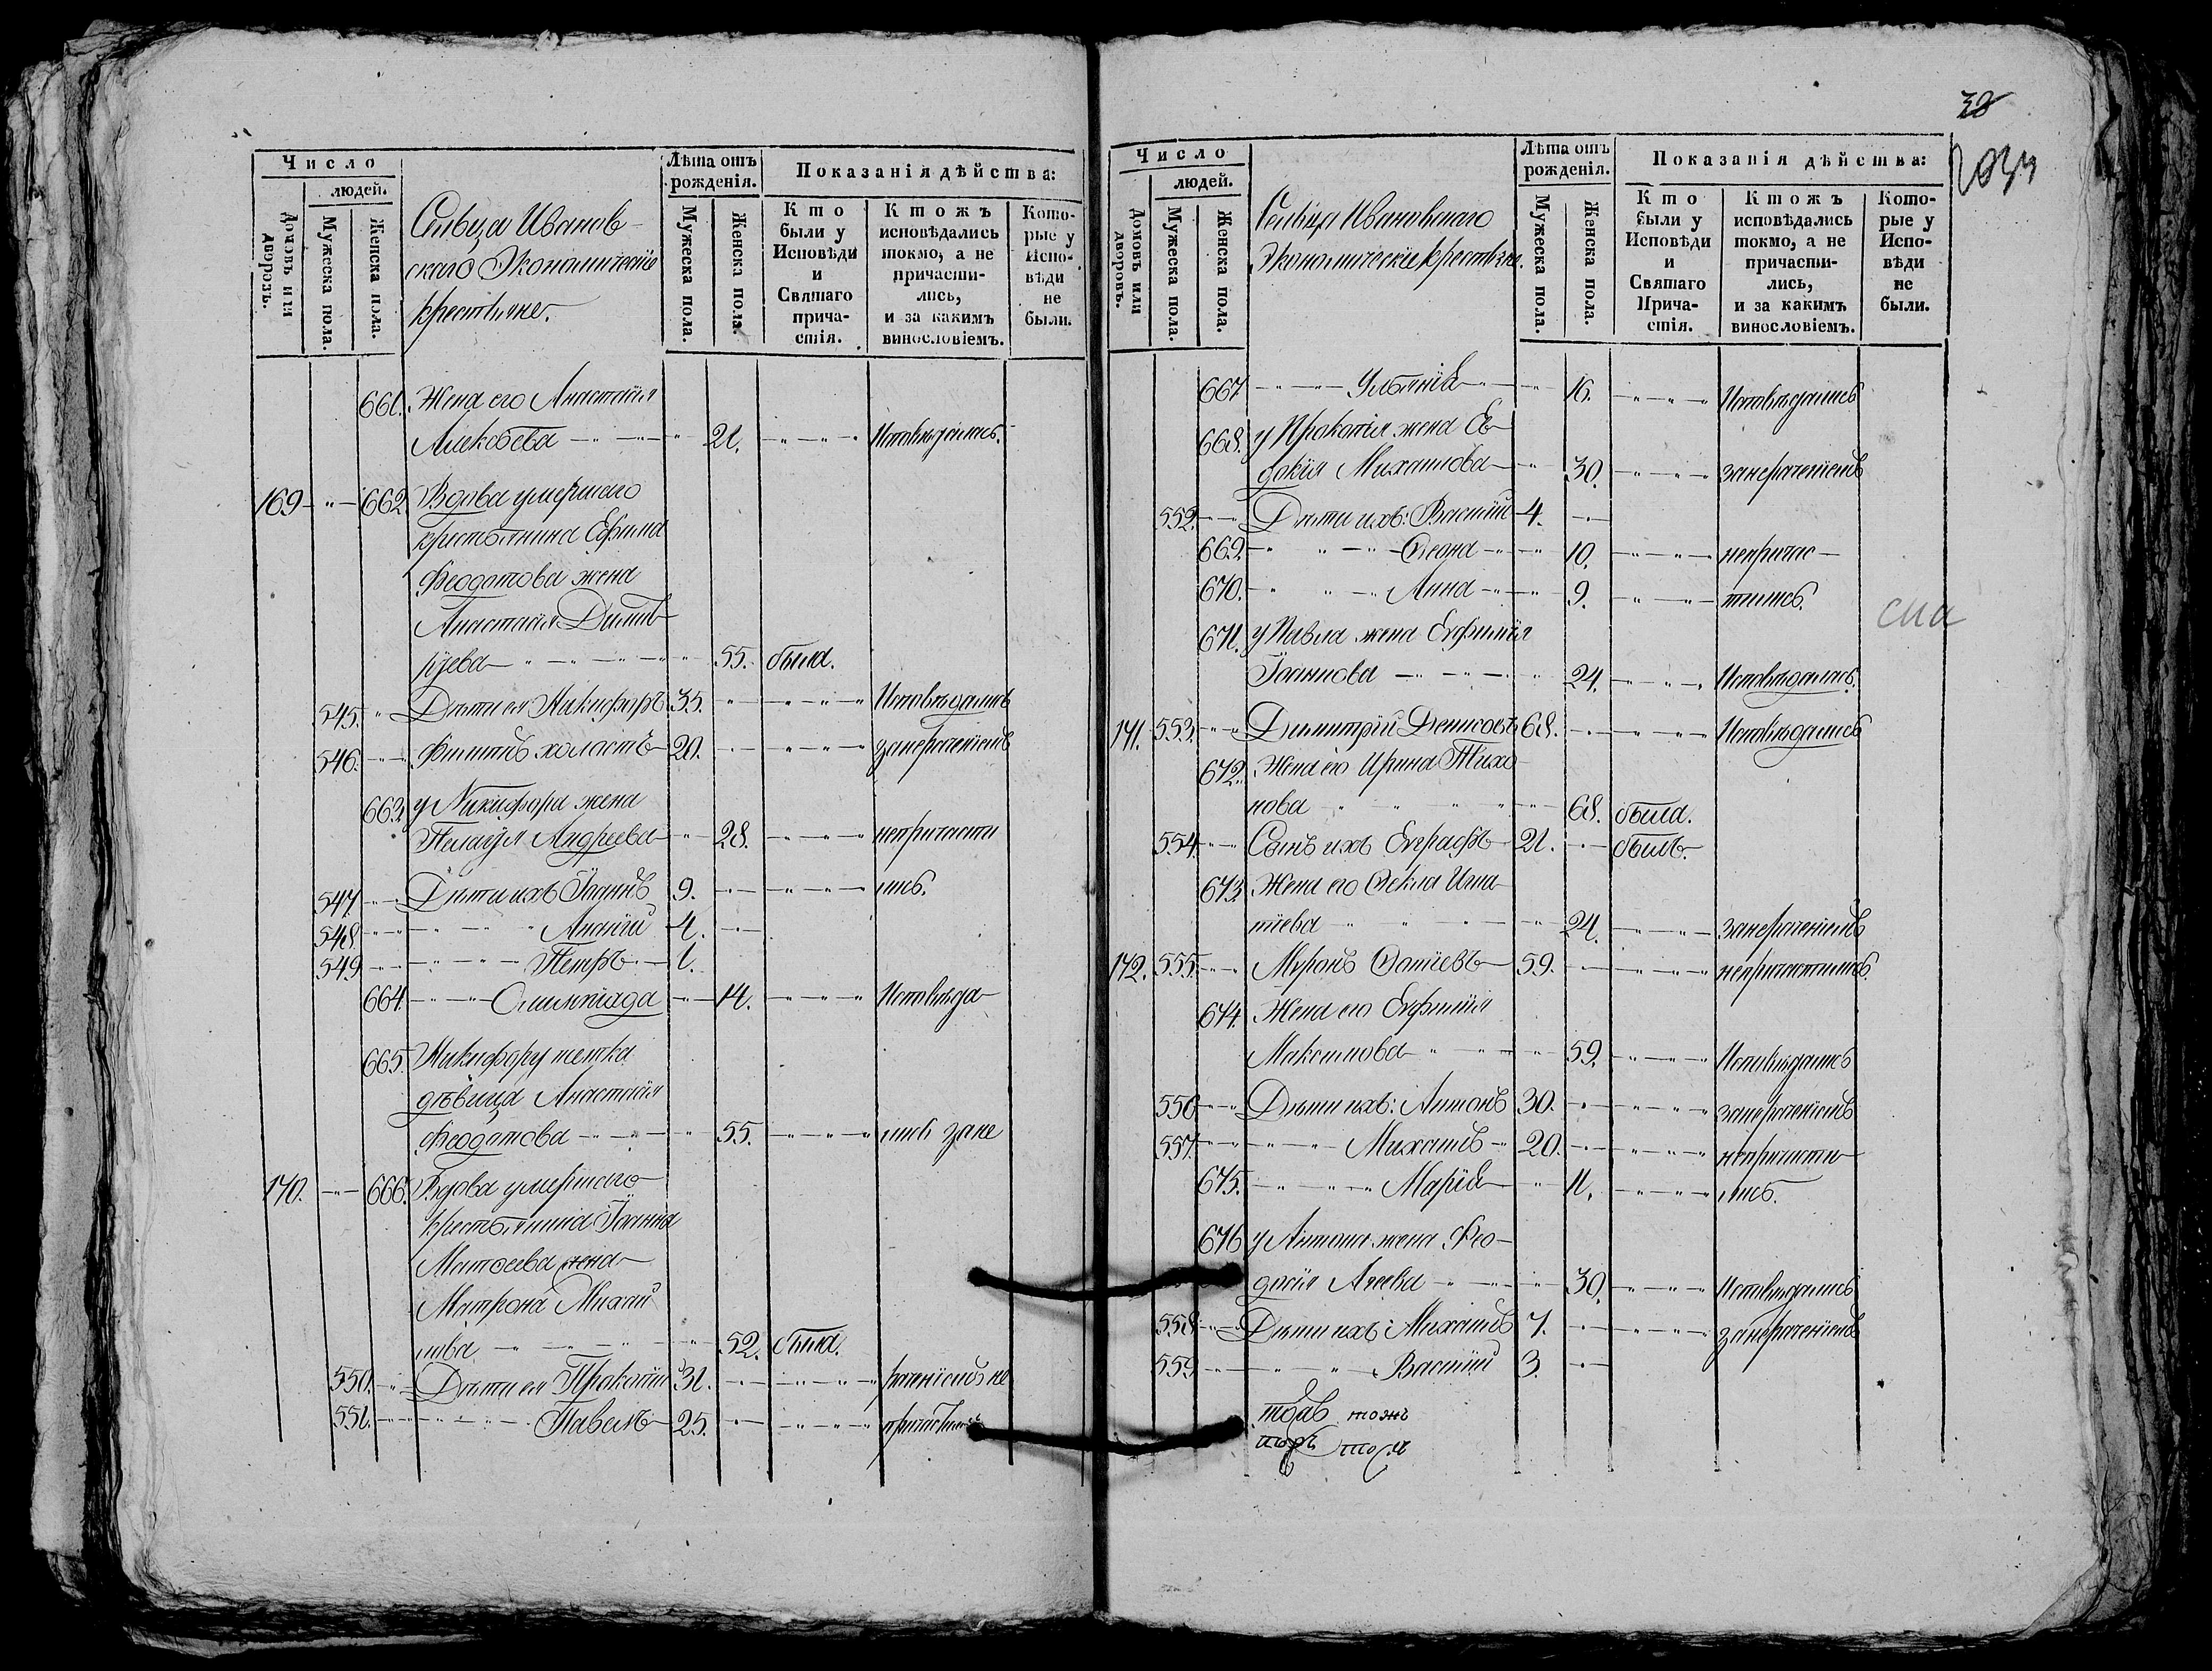 Число
людей.
Домовъ или дворовъ.
Мужеска пола.
Женска пола.
Сельца Иванов-
скаго Экономическіе
крестьяне.
Лѣта отъ
рожденія.
Мужеска пола.
Женска пола.
Показанія дѣйства:
Кто
были у
Исповѣди
и
Святаго
прича-
стія.
Ктожъ
исповѣдались
токмо, а не
причасти-
лись,
и за какимъ
винословіемъ.
Кото-
рые у
Испо-
вѣди
не
были.
661. Жена его Анастасія
Алексѣева 21. Исповѣдалась.
169 662 Вдова умершаго
крестьянина Ефима
Феодотова жена
Анастасія Димит-
ріева 55. была.
545. Дѣти ея Никифоръ 35. Исповѣдались
546. Филиппъ холостъ 20. занераченіемъ
663. у Никифора жена
Пелагія Андреева 28. непричасти
547. Дѣти ихъ Іоаннъ 9. лись.
548. Ананій 4.
549 Петръ 1.
664. Олимпіада 14. Исповѣда-
665. Никифору тетка
дѣвица Анастасія
Феодотова 55. лись зане
170. 666. Вдова умершаго
крестьянина Іоанна
Матѳеева жена
Матрона Михай
лова 52. была.
550. Дѣти ея Прокопій 31. раченіемъ не
551. Павелъ 25. причастились
38
Число
людей.
Домовъ или дворовъ.
Мужеска пола.
Женска пола.
Сельца Ивановскаго
Экономическіе крестьяне.
Лѣта отъ
рожденія.
Мужеска пола.
Женска пола.
Показанія дѣйства:
Кто
были у
Исповѣди
и
Святаго
Прича-
стія.
Ктожъ
исповѣдались
токмо, а не
причасти-
лись,
и за какимъ
винословіемъ.
Кото-
рые у
Испо-
вѣди
не
были.
667 Уліанія 16. Исповѣдались
668. у Прокопія жена Ев-
докія Михаилова 30. занераченіемъ
552. Дѣти ихъ: Василій 4.
669. Ѳеона 10. непричас-
670. Анна 9. тились.
671. у Павла жена Евфимія
Іоаннова 24. Исповѣдалась.
171. 553. Димитрій Денисовъ 68. Исповѣдались
672. Жена его Ирина Тихо-
нова 68. была.
554. Сынъ ихъ Евграфъ 21. былъ.
673. Жена его Ѳекла Игна-
тіева 24. занераченіемъ
172. 555. Миронъ 59. непричастились.
674. Жена его Евфимія
Максимова 59. Исповѣдались
556 Дѣти ихъ: Антонъ 30. занераченіемъ
557. Михаилъ 20. непричасти-
675. Марія 11. лись.
676 у Антона жена Фео-
досія 30. Исповѣдались
558. Дѣти ихъ: Михаилъ 7. занераченіемъ
559 Василій 3.